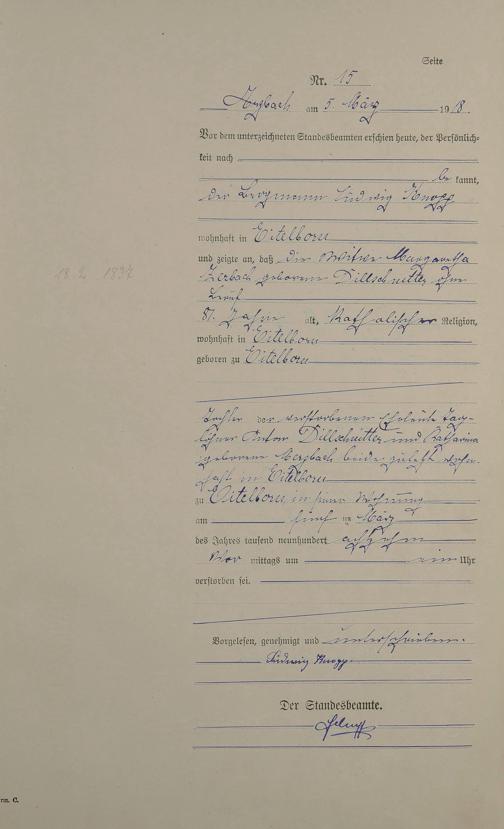 Seite
Nr. 15
am 5. März 1918.
Vor dem unterzeichneten Standesbeamten erschien heute, der Persönlich-
keit nach
be kannt,
der Bergmann Ludwig Knopp
wohnhaft in Eitelborn
und zeigte an, daß die Witwe Margaretha
geborene Dillschnitter ohne
Beruf
87 Jahre alt, katholischer Religion,
wohnhaft in Eitelborn
geboren zu Eitelborn
Tochter der verstorbenen Eheleute Tag-
löhner Anton Dillschnitter und Katharina
geborene Merzbach beide zuletzt wohn-
haft in Eitelborn
zu Eitelborn, in seiner Wohnung
am fünf ten März
des Jahres tausend neunhundert achtzehn
Vor mittags um ein Uhr
verstorben sei.
Vorgelesen, genehmigt und unterschrieben.
Ludwig Knopp
Der Standesbeamte.
rm. C.